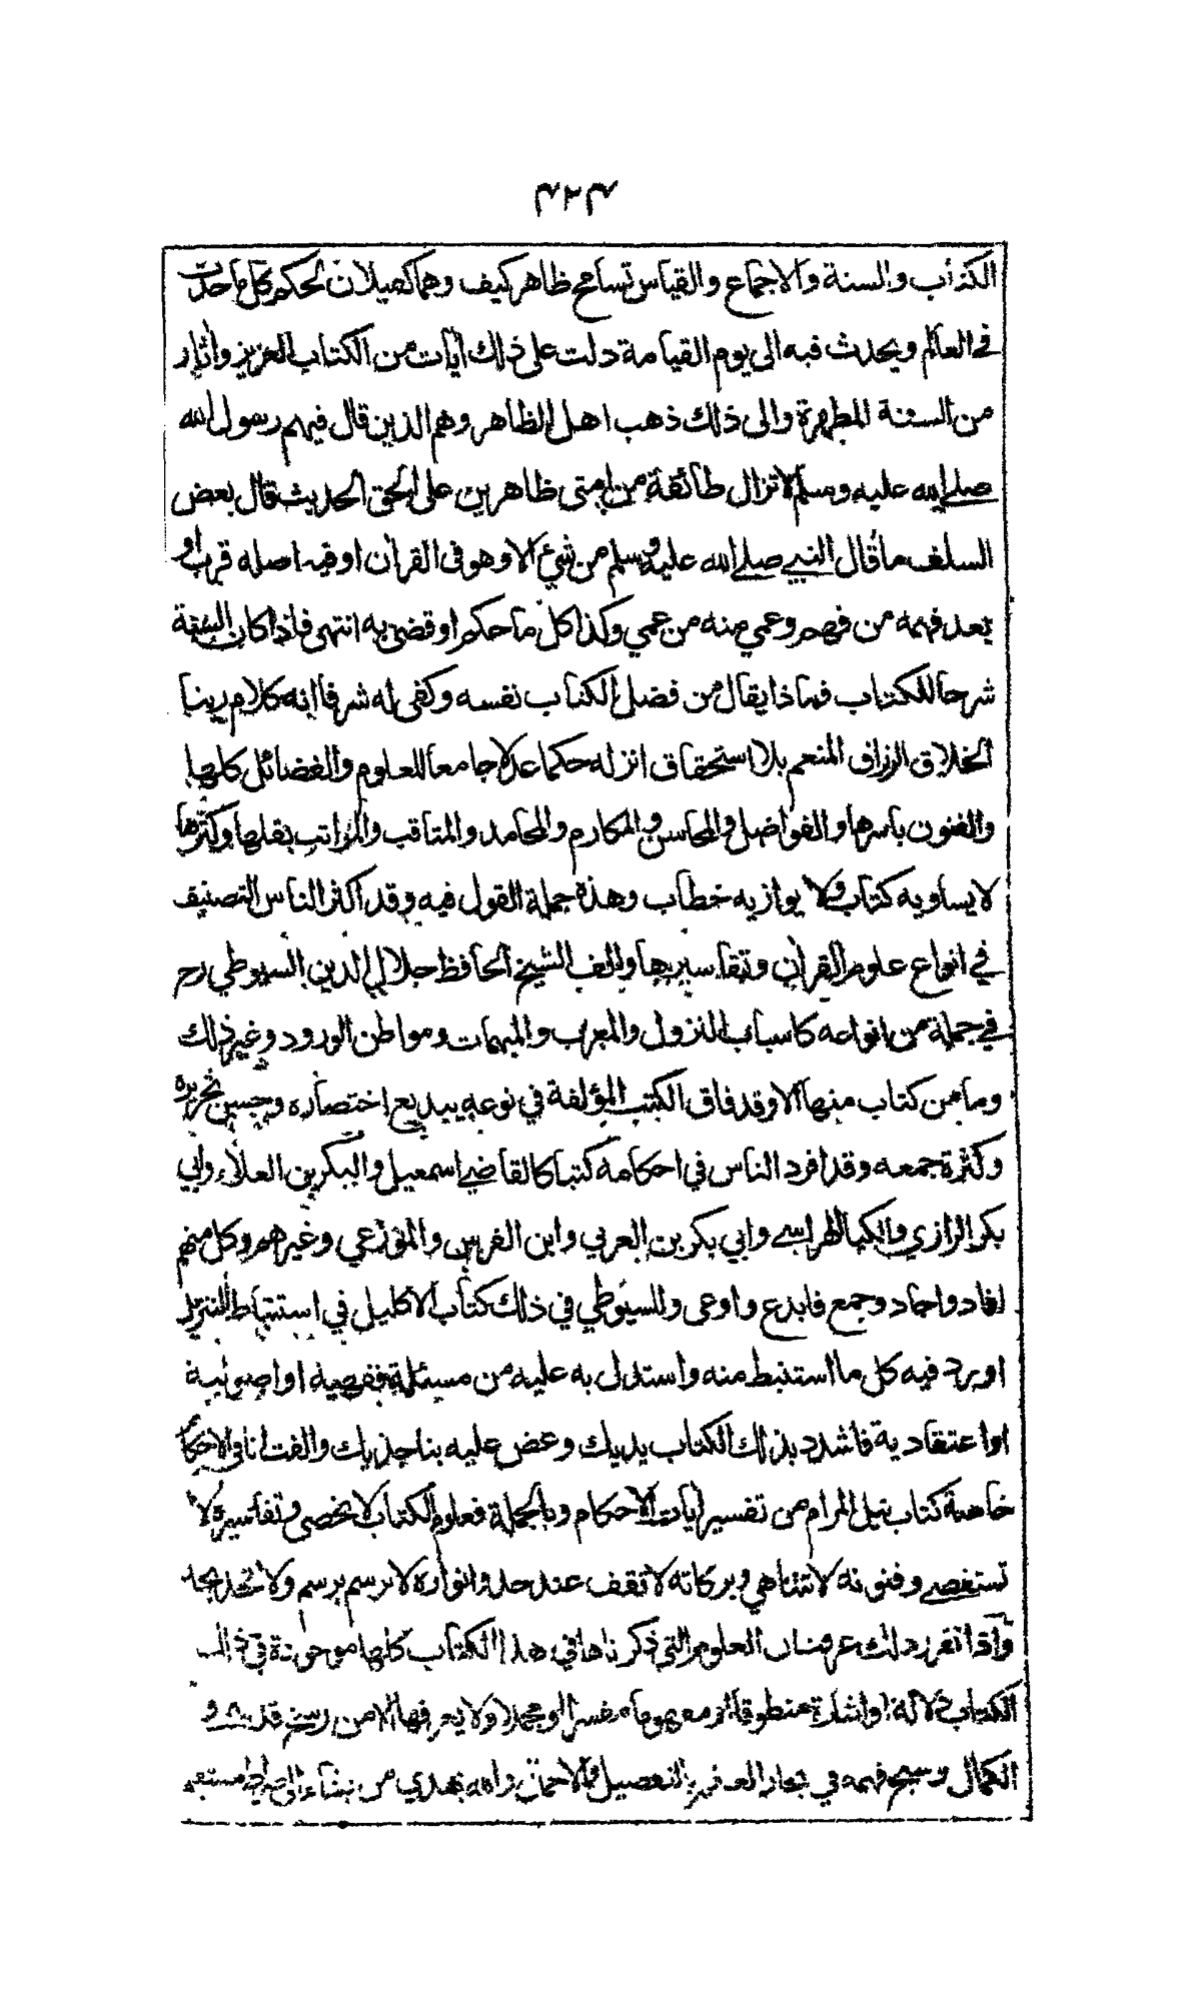 ٤٢٤
الكتاب والسنة والاجماع والقياس تسامح ظاهر كيف وهما كفيلان لحكم كل ما حدث
في العالم ويحدث فيه الى يوم القيامة دلت على ذلك آيات من الكتاب العزيز واثار
من السنة المطهرة والى ذلك ذهب اهل الظاهر وهم الذين قال فيهم رسول الله
صلى الله عليه وسلم لا تزال طائفة من امتي ظاهرين على الحق الحديث قال بعض
السلف ما قال النبي صلى الله عليه وسلم من شيء الا وهو في القران او فيه اصله قرب او
بعد فهمه من فهم وعمي منه من عمي وكذا كل ما حكم او قضى به انتهى فاذا كان السنة
شرحا للكتاب فماذا يقال من فضل الكتاب نفسه وكفى له شرفا انه كلام ربنا
الخلاق الرزاق المنعم بلا استحقاق انزله حكما عدلا جامعا للعلوم والفضائل كلها
والفنون باسرها والفواضل والمحاسن والمكارم والمحامد والمناقب والمراتب بقلها وكثرها
لا يساويه كتاب ولا يوازيه خطاب وهذه جملة القول فيه وقد اكثر الناس التصنيف
في انواع علوم القران وتفاسيرها والف الشيخ الحافظ جلال الدين السيوطي رح
في جملة من انواعه كاسباب النزول والمعرب والمبهمات ومواطن الورود وغير ذلك
وما من كتاب منها الا وقد فاق الكتب المؤلفة في نوعه ببديع اختصاره وحسن تحريره
وكثرة جمعه وقد افرد الناس في احكامه كتبا كالقاضي اسمعيل والبكر بن العلاء وابي
بكر الرازي والكيا الهراسي وابي بكر بن العربي وابن الفرس والموزعي وغيرهم وكل منهم
افاد واجاد وجمع فابدع واوعى والسيوطي في ذلك كتاب الاكليل في استنباط التنزيل
اورد فيه كل ما استنبط منه واستدل به عليه من مسئلة فقهية او اصولية
او اعتقادية فاشدد بذلك الكتاب يديك وعض عليه بناجذيك والفت انا في الاحكام
خاصة كتاب نيل المرام من تفسير ايات الاحكام وبالجملة فعلوم الكتاب لا تحصى وتفاسيره لا
تستقصى وفنونه لا تتناهى وبركاته لا تقف عند حد وانواره لا ترسم برسم ولا تتحد بحد
واذا تقرر ذلك عرفت ان العلوم التي ذكرناها في هذا الكتاب كلها موجودة في ذلك
الكتاب دلالة او اشارة منطوقا او مفهوما مفسرا او مجملا ولا يعرفها الا من رسخ قدمه في
الكمال وسبح فهمه في بحار العلم بالتفصيل والاجمال والله يهدي من يشاء الى صراط مستقيم